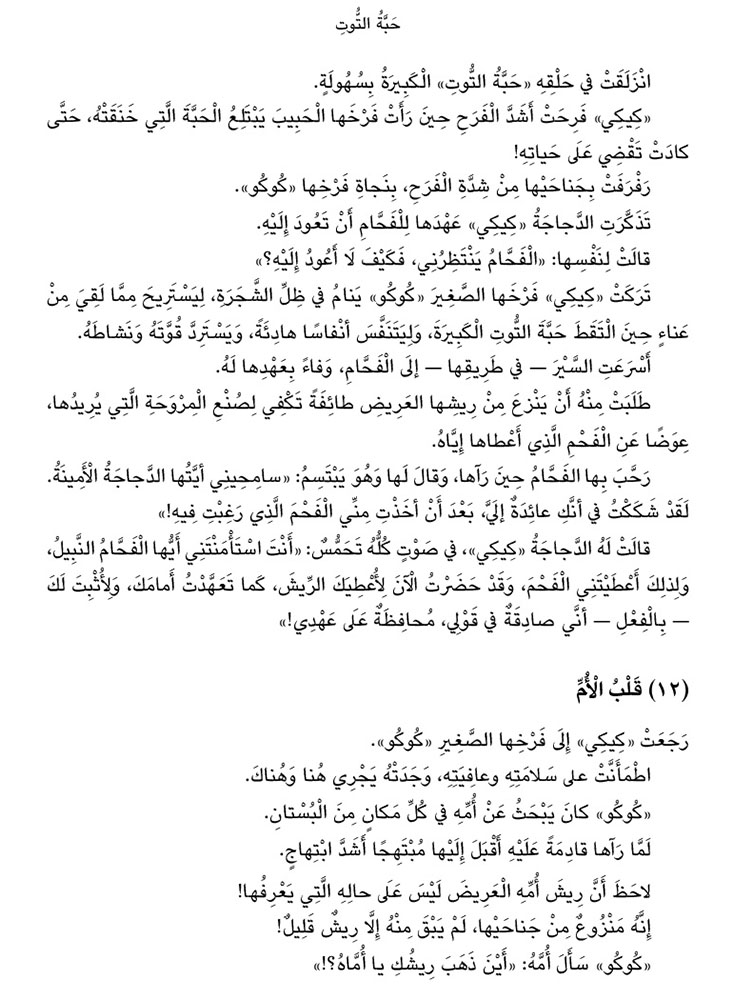 حَبَّةُ التُّوتِ
انْزَلَقَتْ فِي حَلْقِهِ «حَبَّةُ التُّوتِ» الْكَبِيرَةُ بِسُهُولَةٍ.
«كِيكِي» فَرِحَتْ أَشَدَّ الْفَرَحِ حِينَ رَأَتْ فَرْخَها الْحَبِيبَ يَبْتَلِعُ الْحَبَّةَ الَّتِي خَنَقَتْهُ، حَتَّى
كادَتْ تَقْضِي عَلَى حَياتِهِ!
رَفْرَفَتْ بِجَناحَيْها مِنْ شِدَّةِ الْفَرَحِ، بِنَجاةِ فَرْخِها «كُوكُو».
تَذَكَّرَتِ الدَّجاجَةُ «كِيكِي» عَهْدَها لِلْفَحَّامِ أَنْ تَعُودَ إِلَيْهِ.
قالَتْ لِنَفْسِها: «الْفَحَّامُ يَنْتَظِرُنِي، فَكَيْفَ لَا أَعُودُ إِلَيْهِ؟»
تَرَكَتْ «كِيكِي» فَرْخَها الصَّغِيرَ «كُوكُو» يَنامُ فِي ظِلِّ الشَّجَرَةِ، لِيَسْتَرِيحَ مِمَّا لَقِيَ مِنْ
عَناءٍ حِينَ الْتَقَطَ حَبَّةَ التُّوتِ الْكَبِيرَةَ، وَلِيَتَنَفَّسَ أَنْفاسًا هادِئَةً، وَيَسْتَرِدَّ قُوَّتَهُ وَنَشاطَهُ.
أَسْرَعَتِ السَّيْرَ — فِي طَرِيقِها — إلَى الْفَحَّامِ، وَفاءً بِعَهْدِها لَهُ.
طَلَبَتْ مِنْهُ أَنْ يَنْزِعَ مِنْ رِيشِها العَرِيضِ طائِفَةً تَكْفِي لِصُنْعِ الْمِرْوَحَةِ الَّتِي يُرِيدُها،
عِوَضًا عَنِ الْفَحْمِ الَّذِي أَعْطاها إِيَّاهُ.
رَحَّبَ بِها الفَحَّامُ حِينَ رَآها، وَقالَ لَها وَهُوَ يَبْتَسِمُ: «سامِحِينِي أيَّتُها الدَّجاجَةُ الْأَمِينَةُ.
لَقَدْ شَكَكْتُ فِي أنَّكِ عائِدَةٌ إلَيَّ، بَعْدَ أَنْ أخَذْتِ مِنِّي الْفَحْمَ الَّذِي رَغِبْتِ فِيهِ!»
قالَتْ لَهُ الدَّجاجَةُ «كِيكِي»، فِي صَوْتٍ كُلُّهُ تَحَمُّسٌ: «أَنْتَ اسْتَأْمَنْتَنِي أَيُّها الْفَحَّامُ النَّبِيلُ،
وَلِذلِكَ أَعْطَيْتَنِي الْفَحْمَ، وَقَدْ حَضَرْتُ الْآنَ لِأُعْطِيَكَ الرِّيشَ، كَما تَعَهَّدْتُ أَمامَكَ، وَلِأُثْبِتَ لَكَ
— بِالْفِعْلِ — أنَّي صادِقَةٌ فِي قَوْلِي، مُحافِظَةٌ عَلَى عَهْدِي!»
(١٢) قَلْبُ الْأُمِّ
رَجَعَتْ «كِيكِي» إِلَى فَرْخِها الصَّغِيرِ «كُوكُو».
اطْمَأَنَّتْ على سَلامَتِهِ وعافِيَتِهِ، وَجَدَتْهُ يَجْرِي هُنا وَهُناكَ.
«كُوكُو» كانَ يَبْحَثُ عَنْ أُمِّهِ فِي كُلِّ مَكانٍ مِنَ الْبُسْتانِ.
لَمَّا رَآها قادِمَةً عَلَيْهِ أَقْبَلَ إِلَيْها مُبْتَهِجًا أَشَدَّ ابْتِهاجٍ.
لاحَظَ أَنَّ رِيشَ أُمِّهِ الْعَرِيضَ لَيْسَ عَلَى حالِهِ الَّتِي يَعْرِفُها!
إِنَّهُ مَنْزُوعٌ مِنْ جَناحَيْها، لَمْ يَبْقَ مِنْهُ إِلَّا رِيشٌ قَلِيلٌ!
«كُوكُو» سَأَلَ أُمَّهُ: «أَيْنَ ذَهَبَ رِيشُكِ يا أُمَّاهُ؟!»